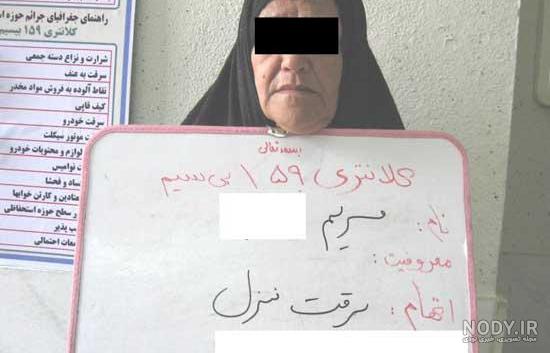 راهنمای جغرافیای جرائم حوزه اس
کلانتری ۱۵۹ بیسیم
شرارت و نزاع دسته جمعی
سرقت به عنف
نقاط آلوده به فروش مواد مخدر
کیف قاپی
سرقت خودرو
ت موتور سیکلت
لوازم و محتویات خودرو
ت نوامیس
ساد و فحشا
عتادین و کارتن خوابها
ر سطح حوزه استحفاظی
ب پذیر
معات احتمالی
بسمه تعالی
کلانتری ۱۵۹ بی سیم
نام: مریم
معروفیت:
اتهام: سرقت منزل
NODY.IR
مجله تصویری، خبری نودی